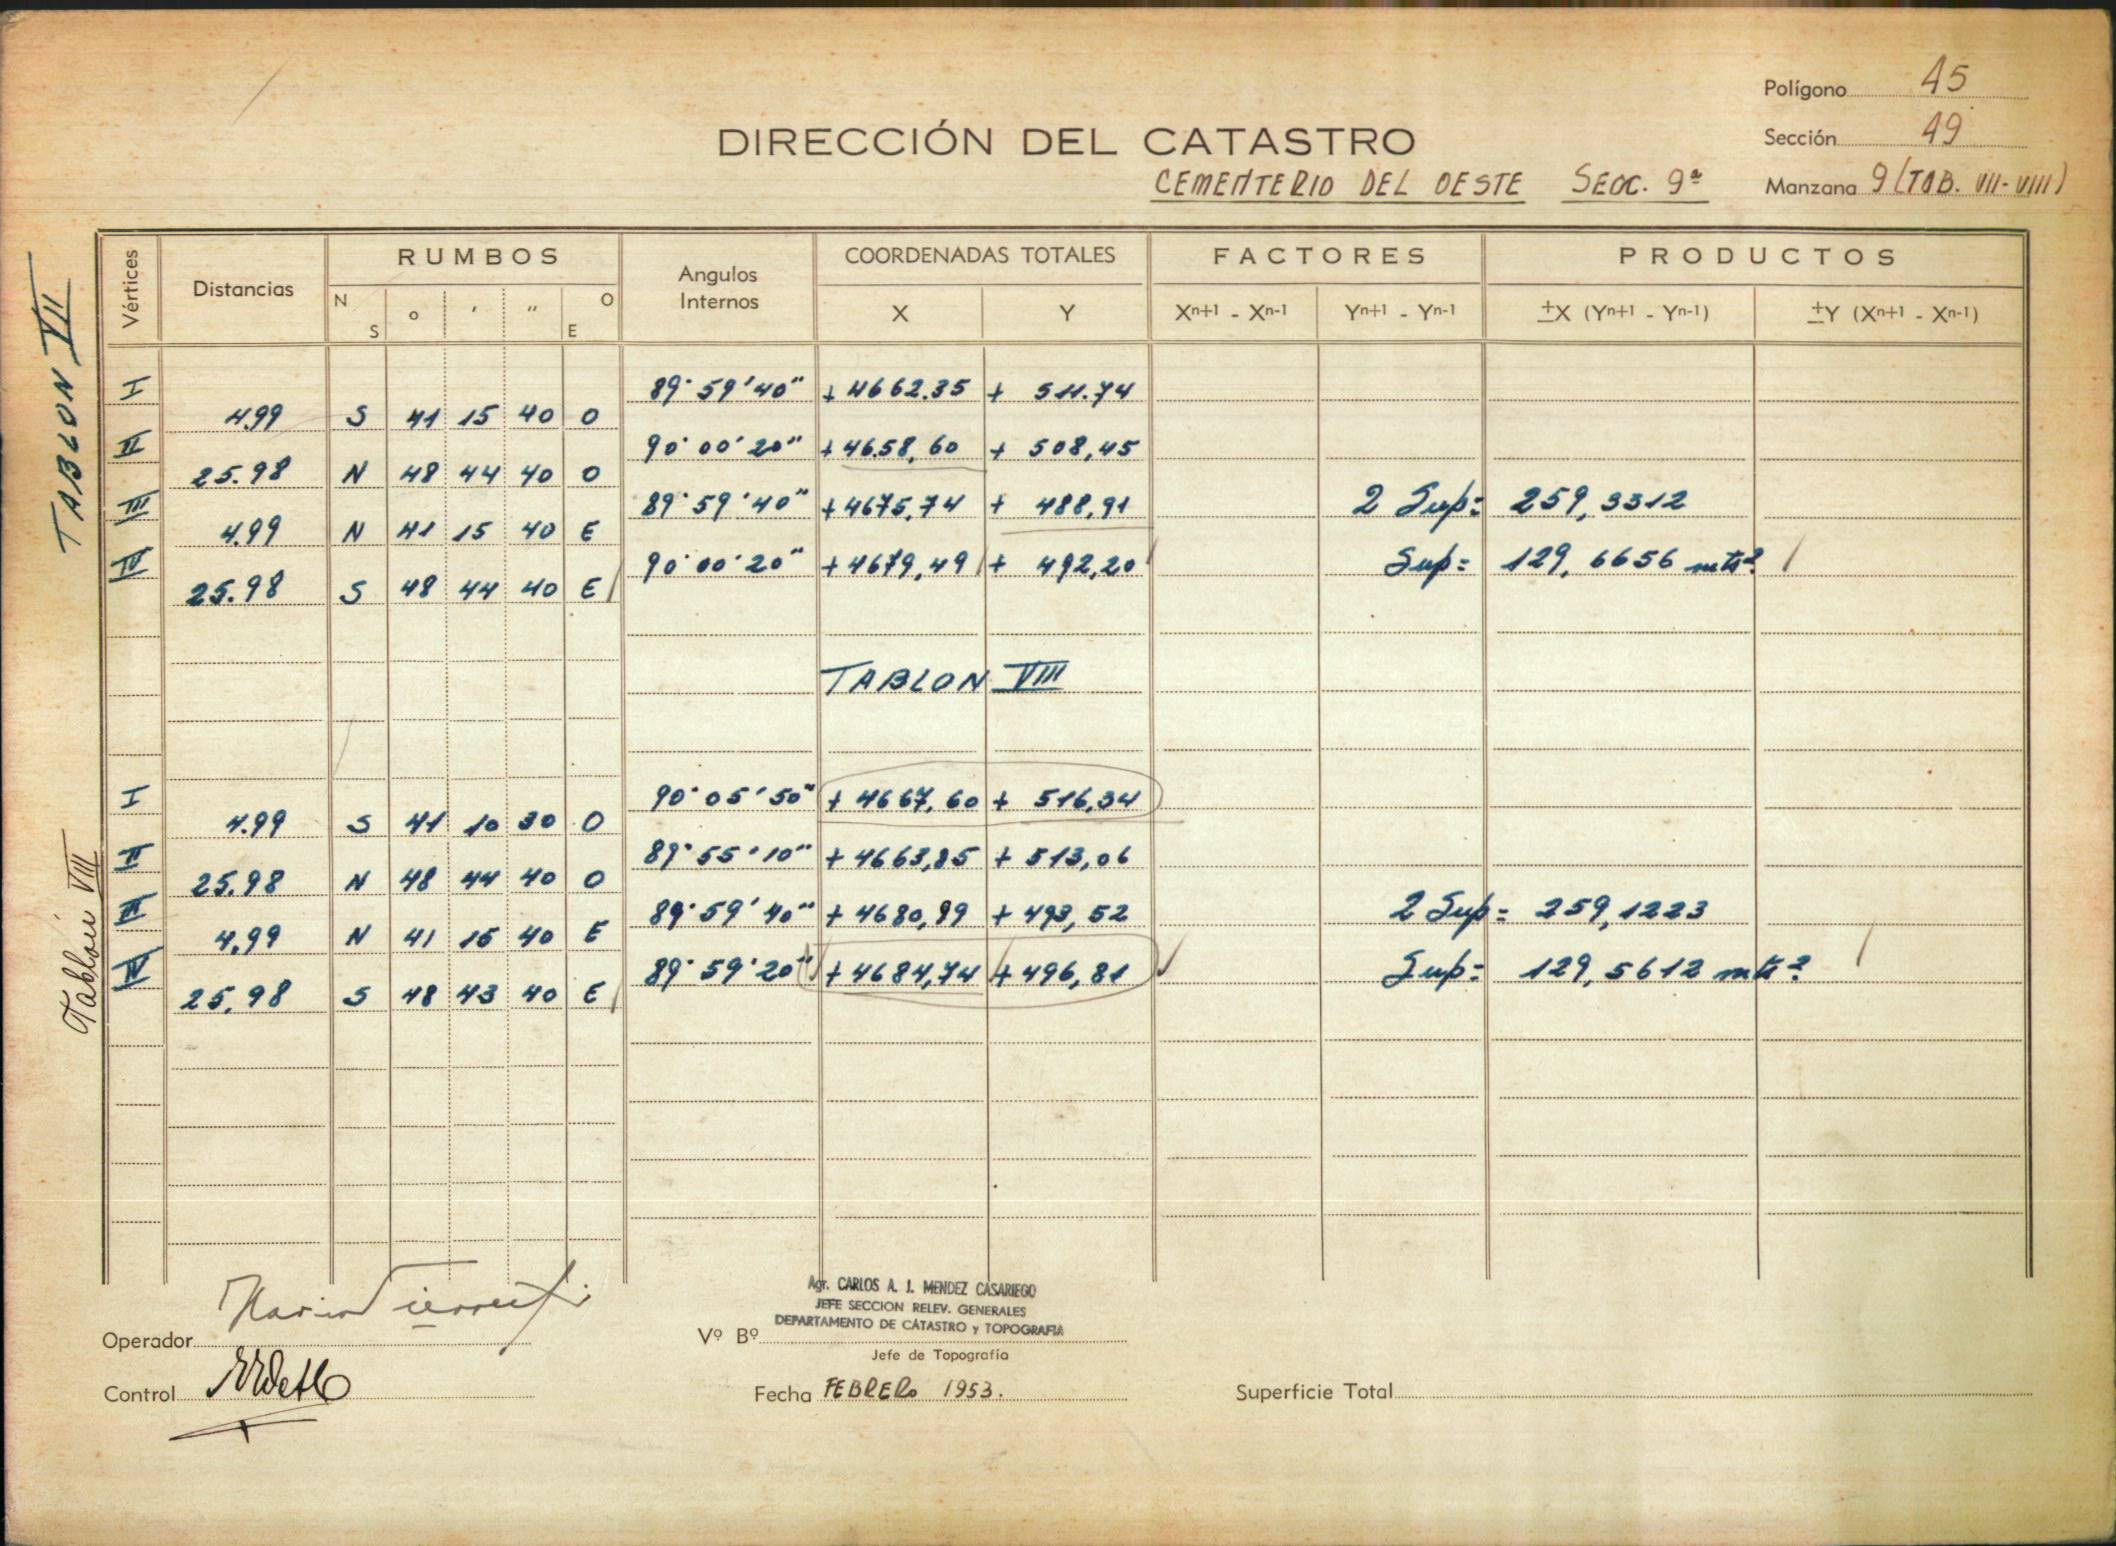 Polígono 45
DIRECCIÓN DEL CATASTRO
Sección 49
CEMENTERIO DEL OESTE SECC. 9ª
Manzana 9 (TAB. VII-VIII)
TABLON VII
Vértices
Distancias
RUMBOS
N S
o
'
"
O E
Angulos Internos
COORDENADAS TOTALES
X Y
FACTORES
Xn+1 - Xn-1 Yn+1 - Yn-1
PRODUCTOS
±X (Yn+1 - Yn-1) ±Y (Xn+1 - Xn-1)
I 89° 59' 40" + 4662.35 + 511.74
4.99 S 41 15 40 O
II 90° 00' 20" + 4658,60 + 508,45
25.98 N 48 44 40 O
III 89° 59' 40" + 4675,74 + 488,91 2 Sup= 259,3312
4.99 N 41 15 40 E
IV 90° 00' 20" + 4679,49 + 492,20 Sup= 129,6656 mts²
25.98 S 48 44 40 E
TABLON VIII
Tablón VIII
I 90° 05' 50" + 4667,60 + 516,34
4.99 S 41 10 30 O
II 89° 55' 10" + 4663,85 + 513,06
25.98 N 48 44 40 O
III 89° 59' 40" + 4680,99 + 493,52 2 Sup= 259,1223
4.99 N 41 15 40 E
IV 89° 59' 20" + 4684,74 + 496,81 Sup= 129,5612 mts²
25,98 S 48 43 40 E
Agr. CARLOS A. J. MENDEZ CASARIEGO
JEFE SECCION RELEV. GENERALES
DEPARTAMENTO DE CATASTRO y TOPOGRAFIA
Operador
Vº Bº
Jefe de Topografía
Control
Fecha FEBRERO 1953.
Superficie Total